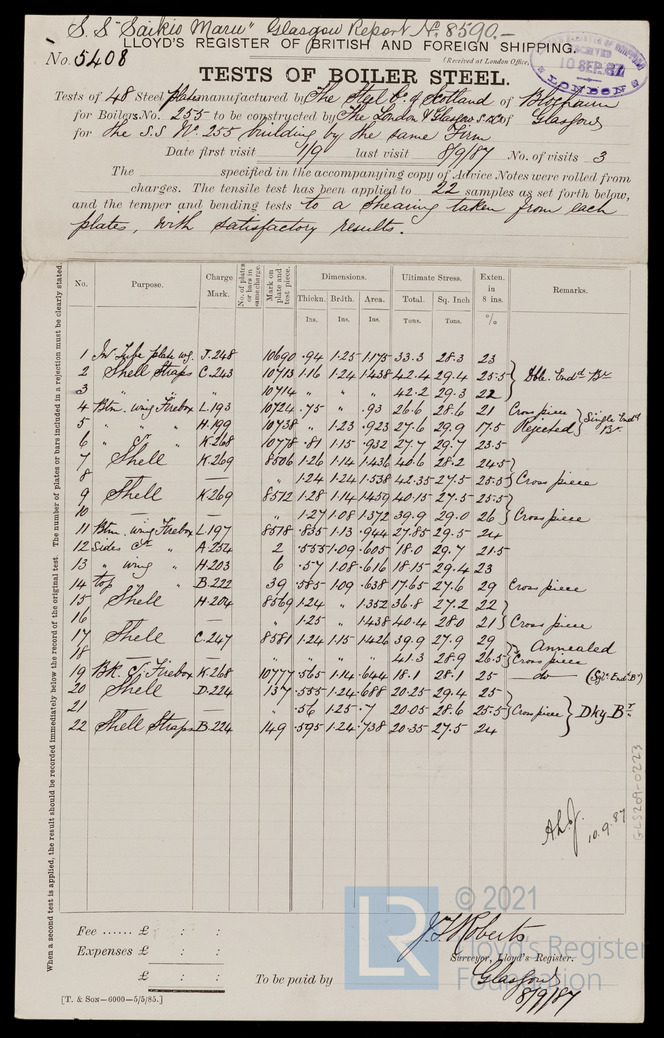 S.S "Saikio Maru" Glasgow Report No. 8590.—
LLOYD'S REGISTER OF BRITISH AND FOREIGN SHIPPING.
No. 5408
(Received at London Office,
RECEIVED
10 SEP. 87
LONDON
TESTS OF BOILER STEEL.
Tests of 48 Steel plates manufactured by The Steel Co. of Scotland of Blochairn
for Boilers No. 255 to be constructed by The London & Glasgow of Glasgow
for the S.S No. 255 building by the same Firm
Date first visit 1/9 last visit 8/9/87 No. of visits 3
The specified in the accompanying copy of Advice Notes were rolled from
charges. The tensile test has been applied to 22 samples as set forth below,
and the temper and bending tests to a shearing taken from each
plates, with satisfactory results.
When a second test is applied, the result should be recorded immediately below the record of the original test. The number of plates or bars included in a rejection must be clearly stated.
No. Purpose. Charge Mark. No. of plates or bars in same charge. Mark on plate and test piece. Dimensions. Ultimate Stress. Exten. in 8 ins. Remarks.
Thickn. Br'dth. Area. Total. Sq. Inch
Ins. Ins. Ins. Tons. Tons. %
1 Tube plate wg. J.248 10690 .94 1.25 1.175 33.3 28.3 23
2 Shell Straps C.243 10713 1.16 1.24 1.438 42.4 29.4 25.5 Dble. End'd Br
3 " " 10714 " " " 42.2 29.3 22
4 Btm. wing Firebox L.193 10724 .75 " .93 26.6 28.6 21 Cross piece Single End'd Br.
5 " " " H.199 10738 " 1.23 .923 27.6 29.9 17.5 Rejected
6 " " K.268 10778 .81 1.15 .932 27.7 29.7 23.5
7 Shell K.269 8506 1.26 1.14 1.436 40.6 28.2 24.5
8 — " 1.24 1.24 1.538 42.35 27.5 25.5 Cross piece
9 Shell K.269 8512 1.28 1.14 1.459 40.15 27.5 25.5
10 — " 1.27 1.08 1.372 39.9 29.0 26 Cross piece
11 Btm. wing Firebox L.197 8578 .835 1.13 .944 27.85 29.5 24
12 Sides " A.254 2 .555 1.09 .605 18.0 29.7 21.5
13 " wing " H.203 6 .57 1.08 .616 18.15 29.4 23
14 top " " B.222 39 .585 1.09 .638 17.65 27.6 29 Cross piece
15 Shell H.204 8569 1.24 " 1.352 36.8 27.2 22
16 — " 1.25 " 1.438 40.4 28.0 21 Cross piece
17 Shell C.247 8581 1.24 1.15 1.426 39.9 27.9 29 Annealed
18 — " " " " 41.3 28.9 26.5 Cross piece
19 Bk. Firebox K.268 10777 .565 1.14 .644 18.1 28.1 25 — do — (Sgl. End. Br)
20 Shell D.224 137 .555 1.24 .688 20.25 29.4 25
21 — " .56 1.25 .7 20.05 28.6 25.5 Cross piece Dky Br.
22 Shell Straps B.224 149 .595 1.24 .738 20.35 27.5 24
10.9.87
GLS209-0223
© 2021
LR
Lloyd's Register
Foundation
Fee ...... £ : :
Expenses £ : :
£ : :
To be paid by
Roberts
Surveyor, Lloyd's Register.
Glasgow
8/9/87
[T. & Son—6000—5/5/85.]